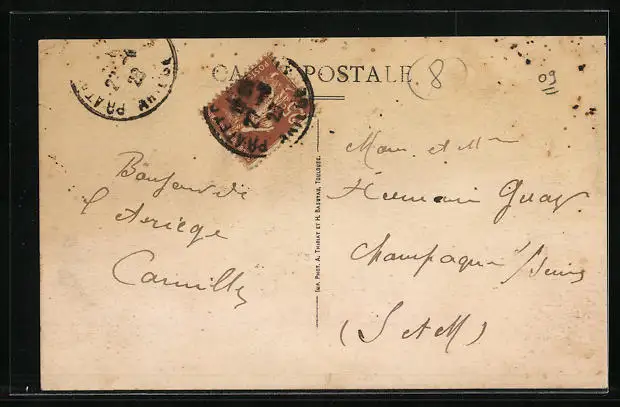 CARTE POSTALE
8
09
Bonjour de
l'Ariège
Camille
Mons. et Mme
Germain Guay
Champagne s/ Seine
(S et M)
IMP. PHOT. A. THIRIAT ET H. BASUYAU, TOULOUSE.